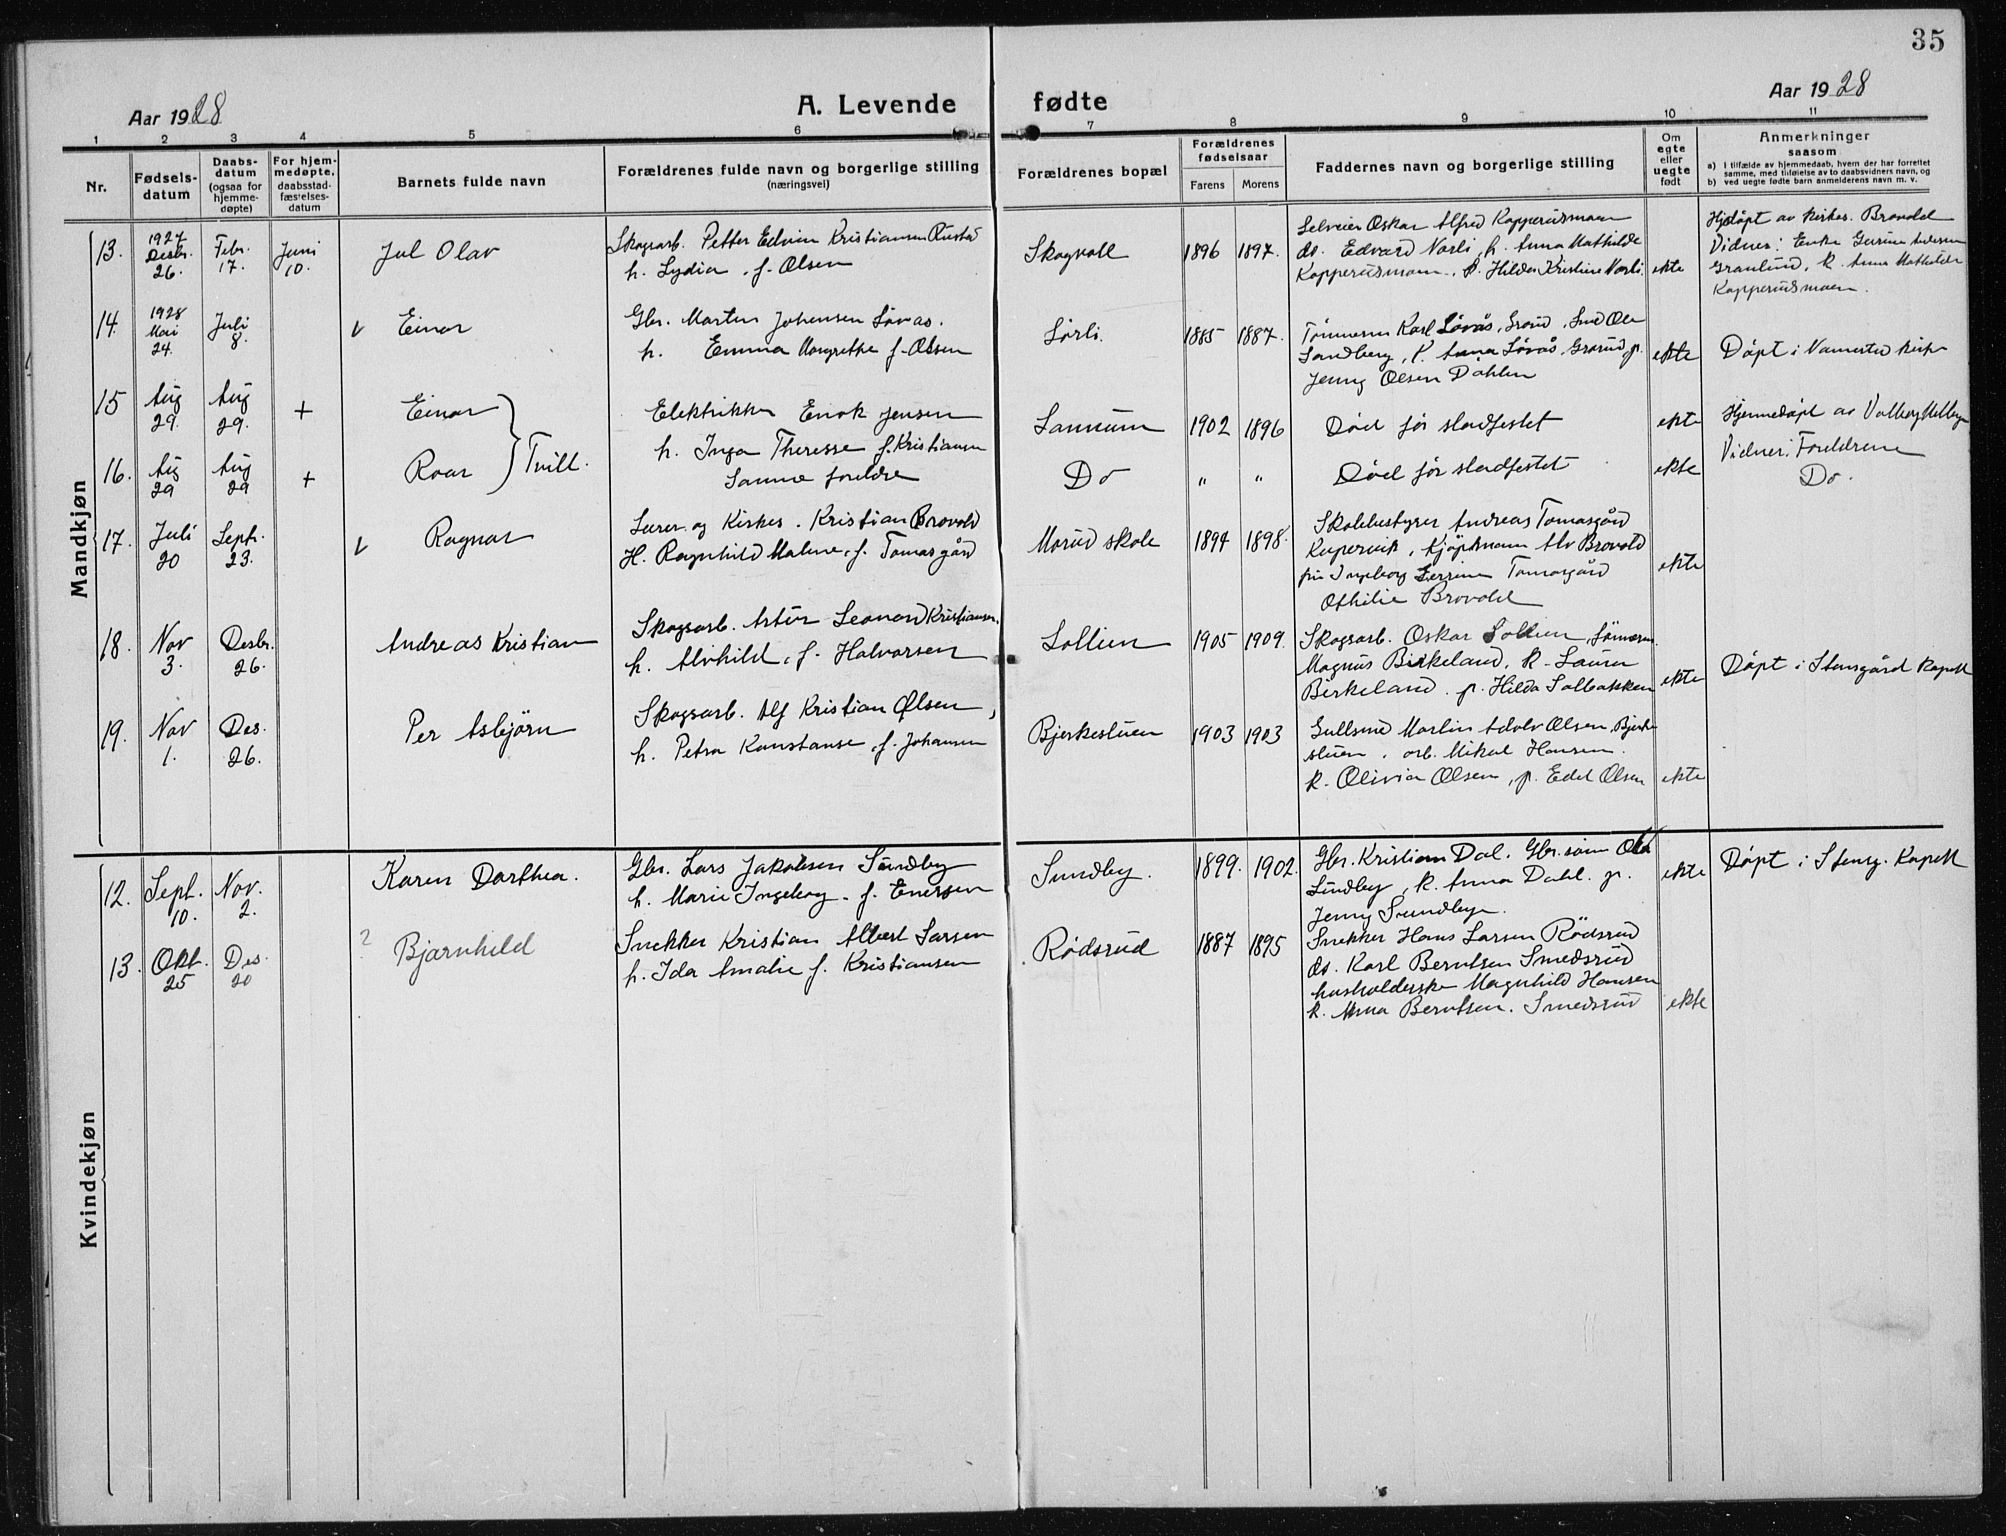 35
Aar 1928
A. Levende fødte
Aar 1928
1 2 3 4 5 6 7 8 9 10 11
Nr.
Fødsels-
datum
Daabs-
datum
(ogsaa for
hjemme-
døpte)
For hjem-
medøpte,
daabsstad-
fæstelses-
datum
Barnets fulde navn
Forældrenes fulde navn og borgerlige stilling
(næringsvei)
Forældrenes bopæl
Forældrenes
fødselsaar
Farens Morens
Faddernes navn og borgerlige stilling
Om
egte
eller
uegte
født
Anmerkninger
saasom
a) I tilfælde av hjemmedaab, hvem der har forrettet
samme, med tilføielse av to daabsvidners navn, og
b) ved uegte fødte barn anmelderens navn m. v.
Mandkjøn
13.
1927
Desbr.
26.
Febr.
17.
Juni
10.
Jul Olav
Skogsarb. Petter Edvin Kristiansen Rustad
h. Lydia, f. Olsen
Skogvoll
1896 1897.
Selveier Oskar Alfred Kopperudsmoen
ds. Edvard Norli, h. Anna Mathilde
Kopperudsmoen, p. Hilda Kristine Norli.
ekte
Hjdøpt av kirkes. Brovold
Vidner: Enke Gurine Andersen
Granlund, k. Anna Mathilde
Kopperudsmoen.
14.
1928
Mai
24.
Juli
8.
v Einar
Gbr. Martin Johansen Løvås.
h. Emma Margrethe f. Olsen
Lørli.
1885 1887.
Tømmerm Karl Løvås, Grorud, Smed Ole
Sandberg, k. Anna Løvås Grorud, p.
Jenny Olsen Dahlen
ekte
Døpt i kirke
15
Aug
29.
Aug
29.
+
Einar
Elektriker Enok Jensen
h. Inga Theresse f. Kristiansen
Sannum
1902 1896
Død før stadfestet
ekte
Hjemmedøpt av Valborg
Vidner: Foreldrene
16.
Aug
29
Aug
29
+
Roar
Tvill.
Samme foreldre
Do
" "
Død før stadfestet
ekte
Do.
17.
Juli
20
Sept.
23.
v Ragnar
Lærer og Kirkes. Kristian Brovold
H. Ragnhild Malene, f. Tomasgård
Morud skole
1894 1898.
Skolebestyrer Andreas Tomasgård
Kopervik, Kjøpmann Alv Brovold
fru Ingeborg Tomasgård
Othilie Brovold
ekte
18.
Nov
3.
Desbr.
26.
Andreas Kristian
Skogsarb. Artur Leonard Kristiansen.
h. Alvhild, f. Halvorsen
Sollien
1905 1909.
Skogsarb. Oskar Sollien,
Magnus Birkeland, k. Laura
Birkeland. p. Hilda Solbakken
ekte
Døpt i Stensgård Kapell
19.
Nov
1.
Des.
26.
Per Asbjørn
Skogsarb. Alf Kristian Olsen,
h. Petra Konstanse, f. Johansen
Bjerkestuen
1903 1903
Gullsmed Martin Adolv Olsen, Bjerke
stuen, arb. Mikal Hansen.
k. Olivia Olsen, p. Edel Olsen
ekte
Kvindekjøn
12.
Sept.
10.
Nov.
2.
Karen Dorthea.
Gbr. Lars Jakobsen Sundby
h. Marie Ingeborg. f. Enersen
Sundby.
1899. 1902.
Gbr. Kristian Dal. Gbr.sønn Ola
Sundby, k. Anna Dahl. p.
Jenny Sundbye.
ekte
Døpt i Stensg. Kapell
13.
Okt.
25
Des.
20
? Bjarnhild
Snekker Kristian Albert Larsen
h. Ida Amalie f. Kristiansen
Rødsrud
1887 1895
Snekker Hans Larsen Rødsrud
ds. Karl Berntsen Smedsrud
husholderske Magnhild Hansen
k. Anna Berntsen. Smedsrud
ekte